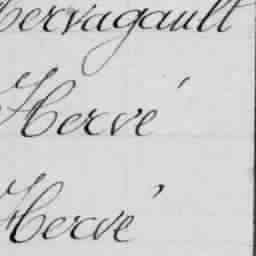 Hervagault
Hervé
Hervé